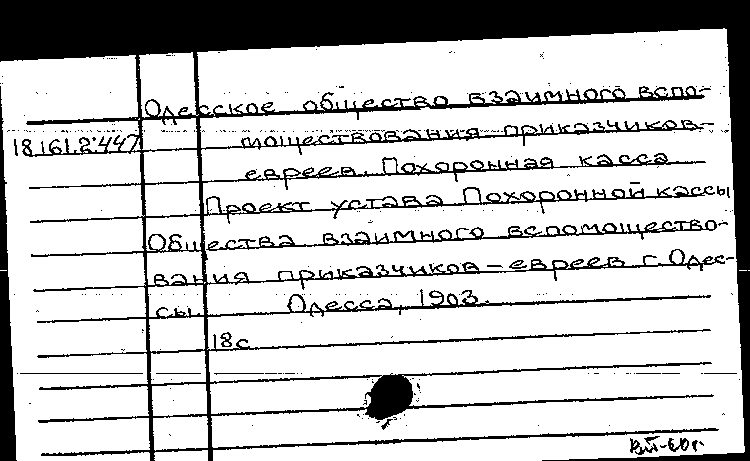 Одесское общество взаимного вспо-
18.161.2.447 моществования приказчиков-
евреев. Похоронная касса
Проект устава Похоронной кассы
Общества взаимного вспомощество-
вания приказчиков-евреев г. Одес-
сы. Одесса, 1903.
18с